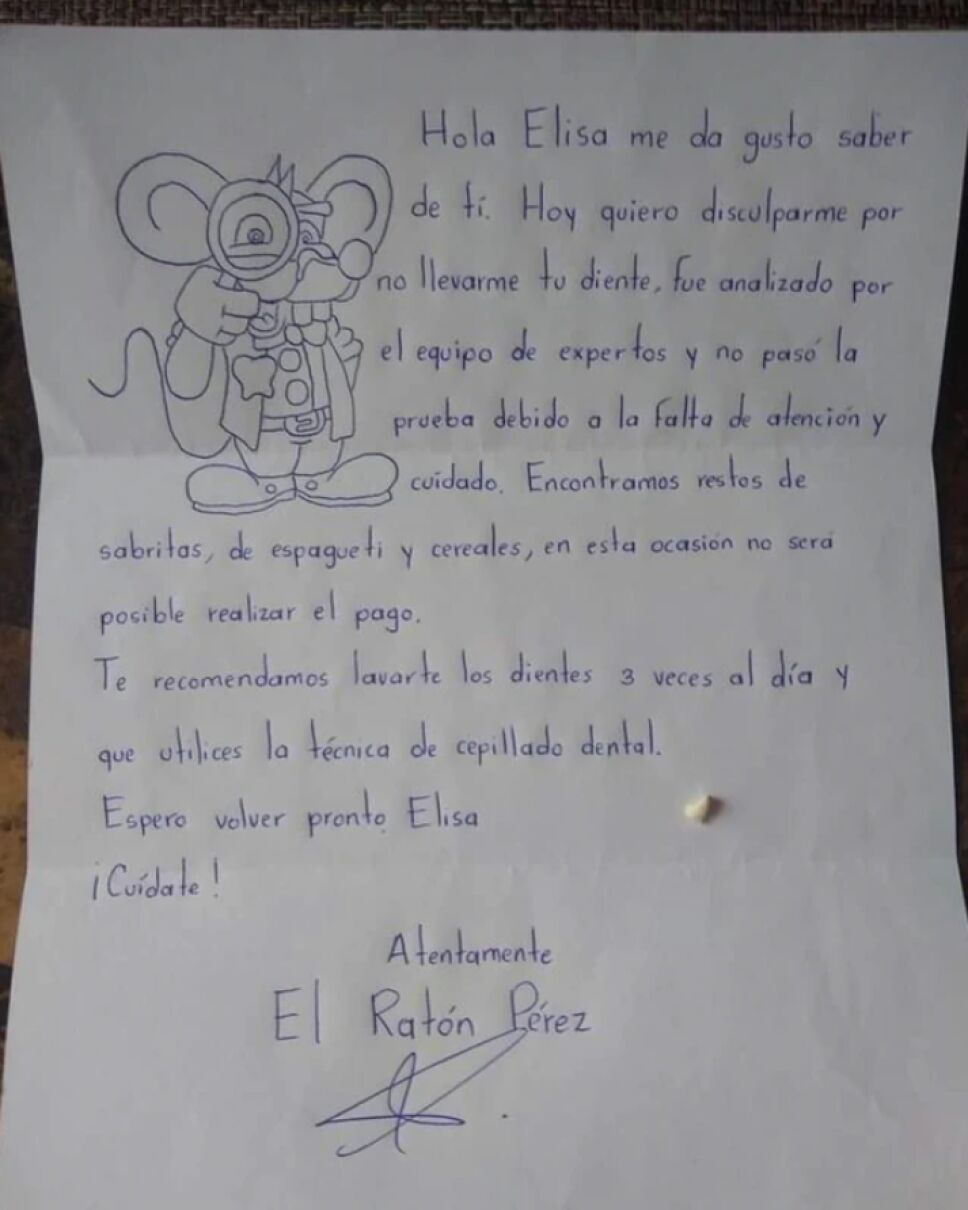 Hola Elisa me da gusto saber
de tí. Hoy quiero disculparme por
no llevarme tu diente, fue analizado por
el equipo de expertos y no pasó la
prueba debido a la falta de atención y
cuidado. Encontramos restos de
sabritas, de espagueti y cereales, en esta ocasión no será
posible realizar el pago.
Te recomendamos lavarte los dientes 3 veces al día y
que utilices la técnica de cepillado dental.
Espero volver pronto Elisa
¡Cuídate!
Atentamente
El Ratón Pérez